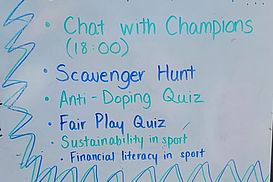 • Chat with Champions
(18:00)
• Scavenger Hunt
• Anti-Doping Quiz
• Fair Play Quiz
• Sustainability in sport
• Financial literacy in sport